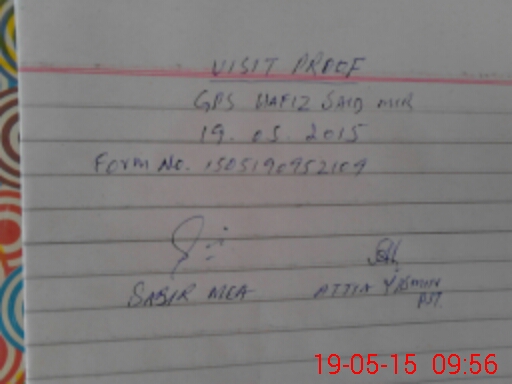 VISIT PROOF
GPS HAFIZ SAID MIR
19.05.2015
Form No. 1505190952109
SABIR MEA
ATTIA YASMIN
PST.
19-05-15 09:56